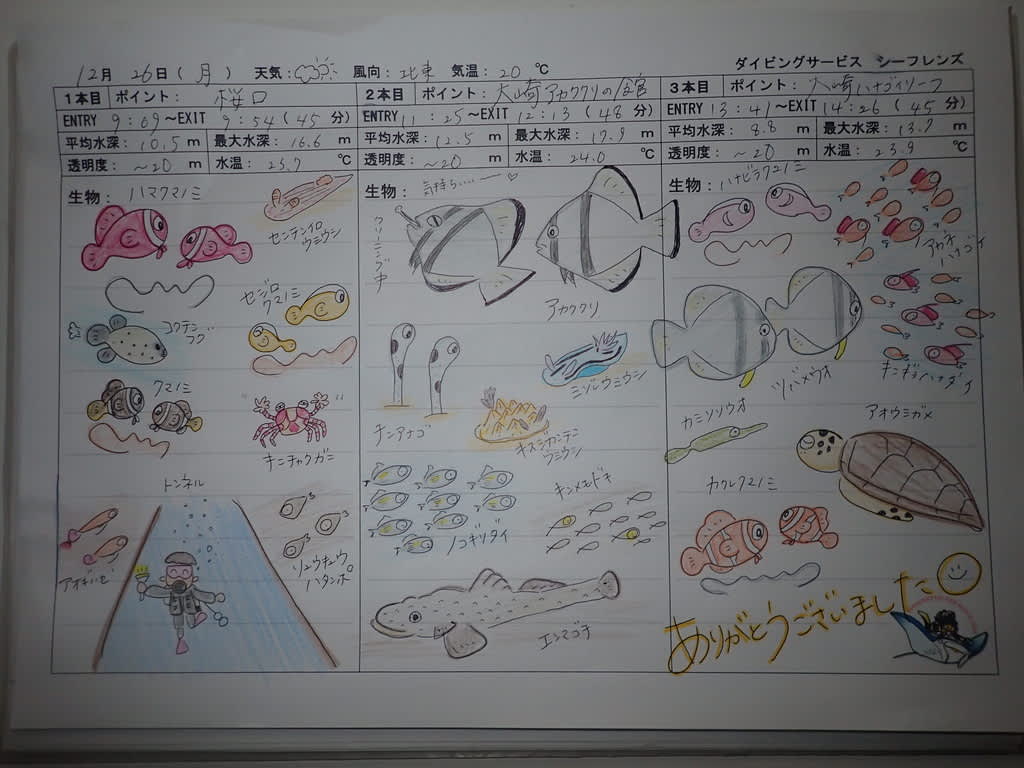 12月 26日(月) 天気: 風向: 北東 気温: 20 ℃
ダイビングサービス シーフレンズ
1本目 ポイント: 桜口
ENTRY 9:09~EXIT 9:54(45分)
平均水深: 10.5 m 最大水深: 16.6 m
透明度: ~20 m 水温: 23.7 ℃
生物: ハマクマノミ
センテンイロ
ウミウシ
セジロ
クマノミ
コクテン
フグ
クマノミ
キンチャクガニ
トンネル
アオギハゼ
リュウキュウ
ハタンポ
2本目 ポイント: 大崎アカククリの館
ENTRY 11:25~EXIT 12:13(48分)
平均水深: 12.5 m 最大水深: 17.9 m
透明度: ~20 m 水温: 24.0 ℃
生物: 気持ち……~♡
クリーニング中
アカククリ
チンアナゴ
ミゾレウミウシ
キスジカンテン
ウミウシ
ノコギリダイ
キンメモドキ
エンマゴチ
3本目 ポイント: 大崎ハナゴイリーフ
ENTRY 13:41~EXIT 14:26(45分)
平均水深: 8.8 m 最大水深: 13.7 m
透明度: ~20 m 水温: 23.9 ℃
生物: ハナビラクマノミ
アカネ
ハナゴイ
キンギョハナダイ
ツバメウオ
カミソリウオ
アオウミガメ
カクレクマノミ
ありがとうございました